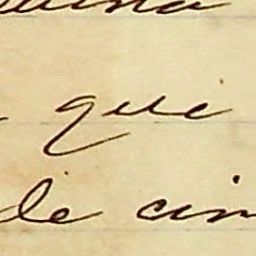 que
de cin